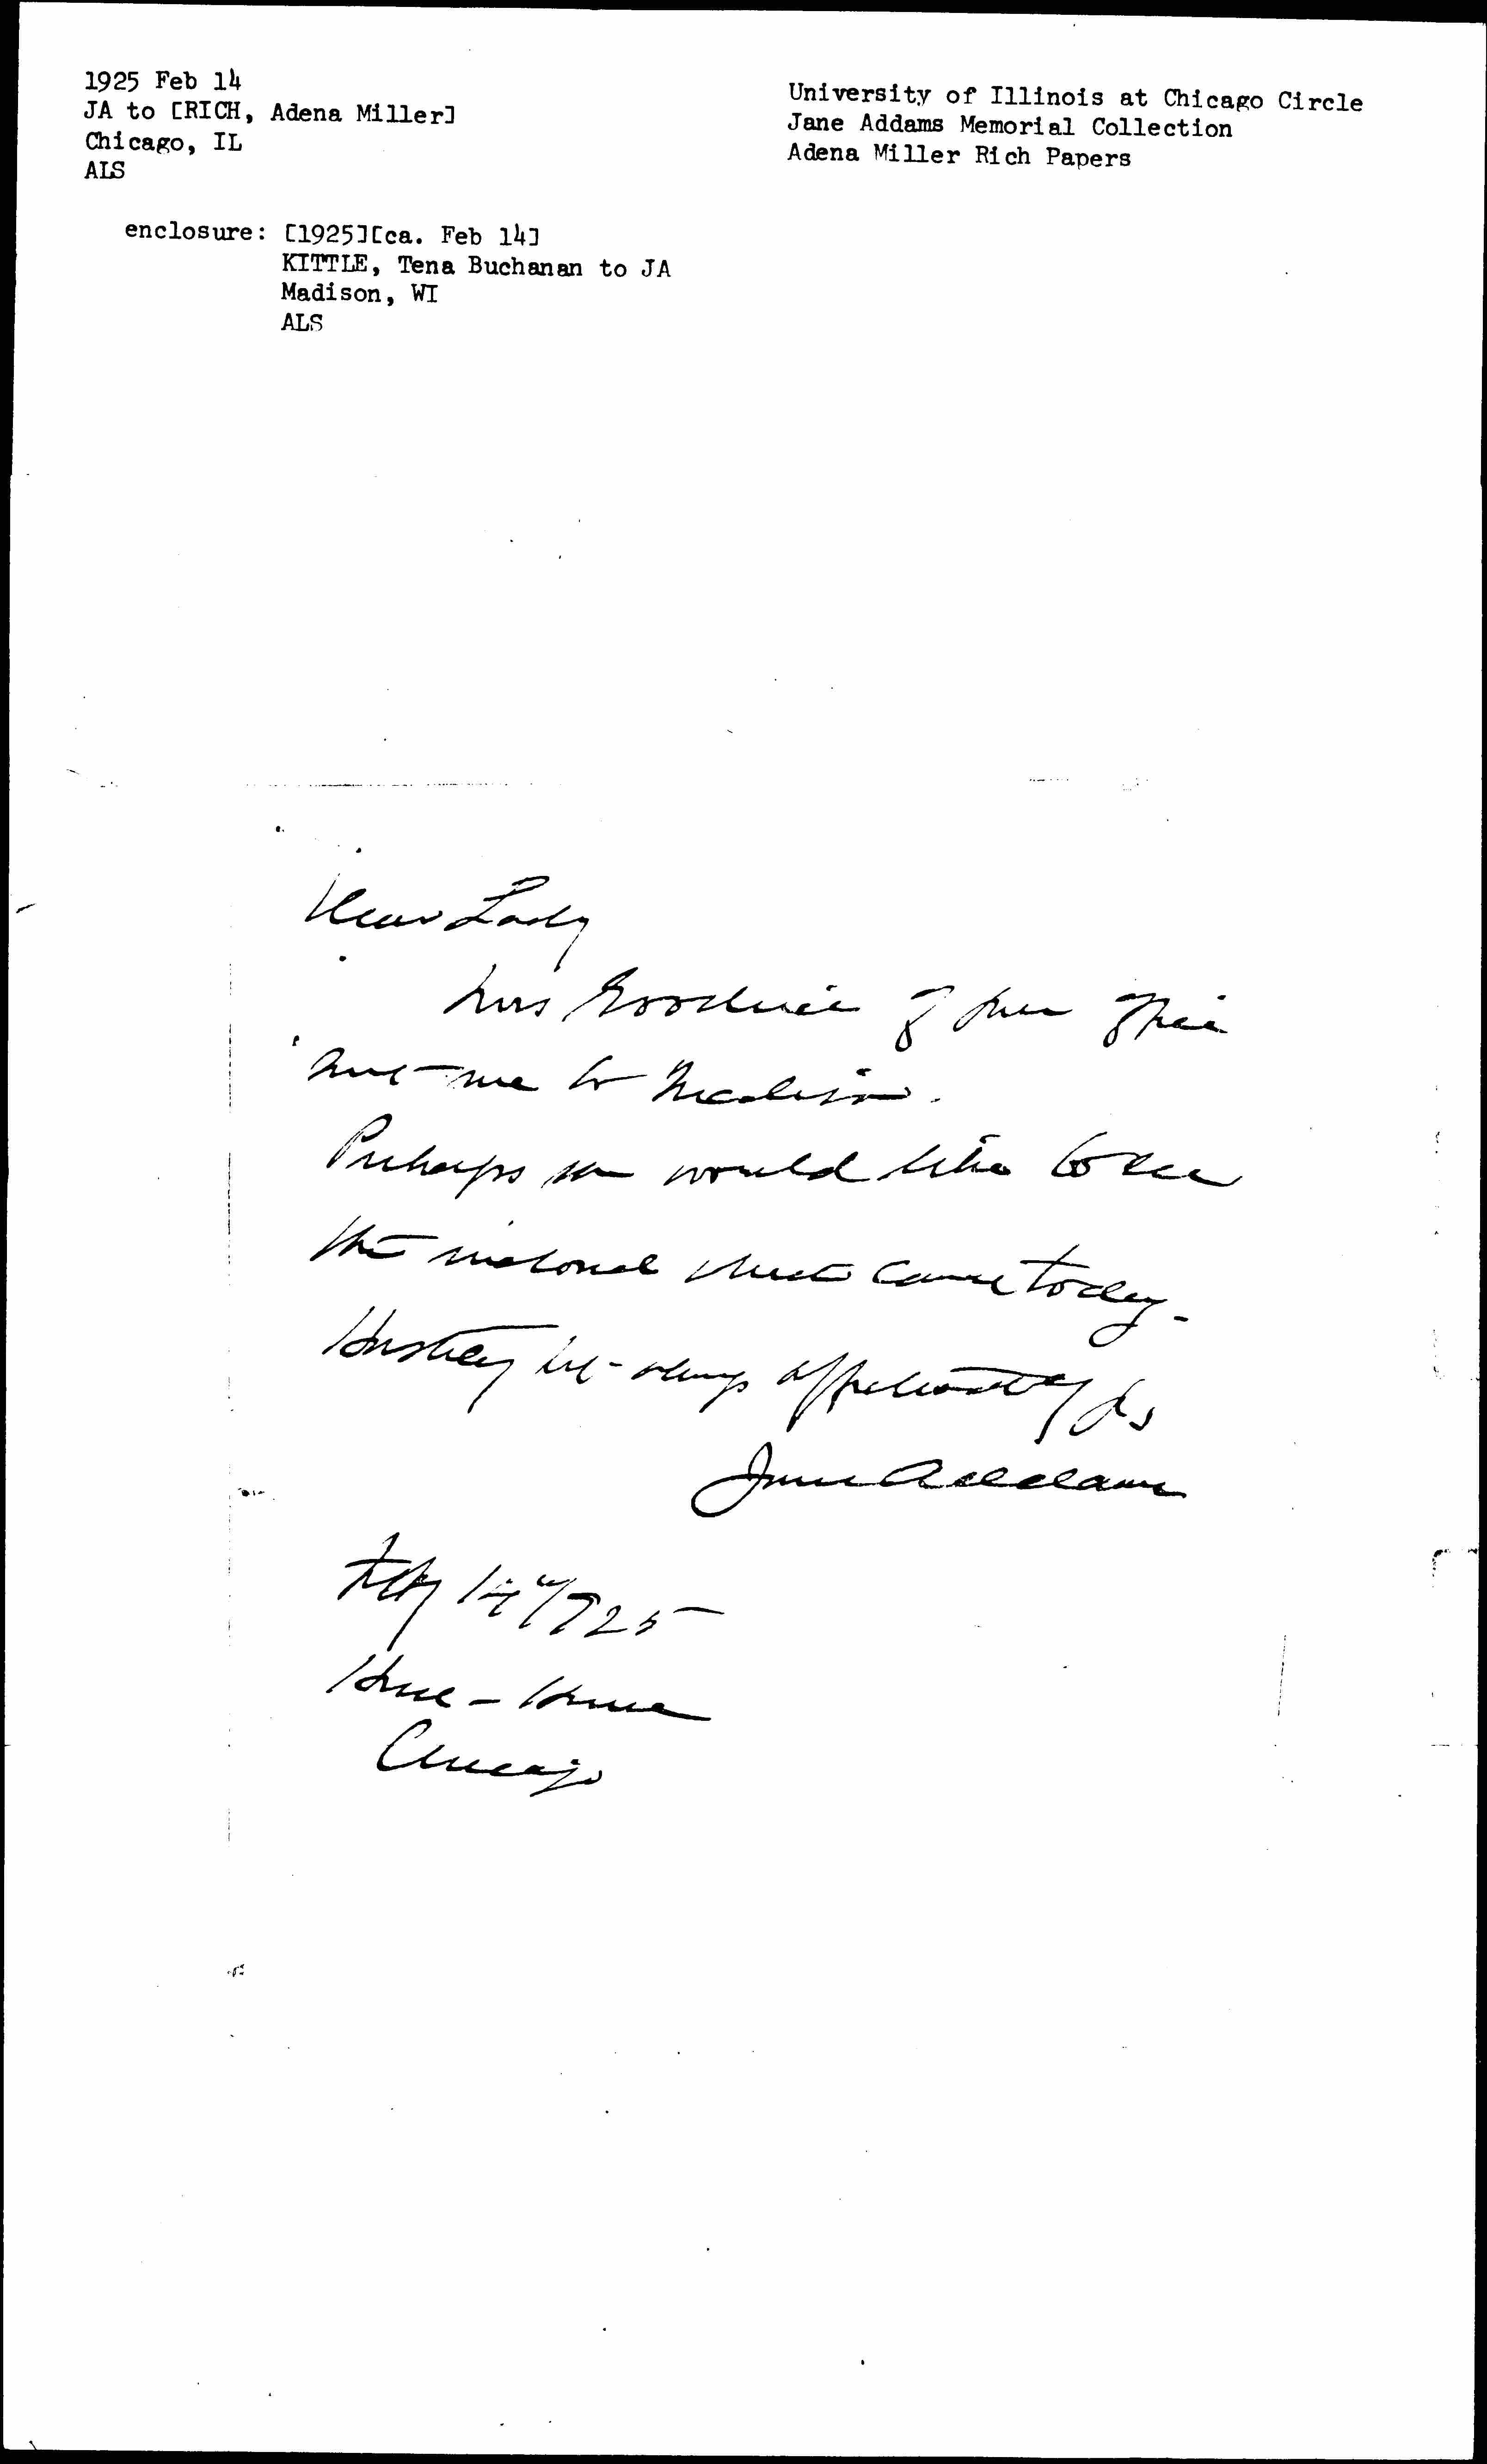 1925 Feb 14
JA to [RICH, Adena Miller]
Chicago, IL
ALS
University of Illinois at Chicago Circle
Jane Addams Memorial Collection
Adena Miller Rich Papers
enclosure: [1925][ca. Feb 14]
KITTLE, Tena Buchanan to JA
Madison, WI
ALS
Dear Lady
Mrs Goodwin of your office
sent me to Madison.
Perhaps you would like to see
the which came today.
Hastily but always affectionately yrs
Jane Addams
Feby 14" 1925
Hull-House
Chicago